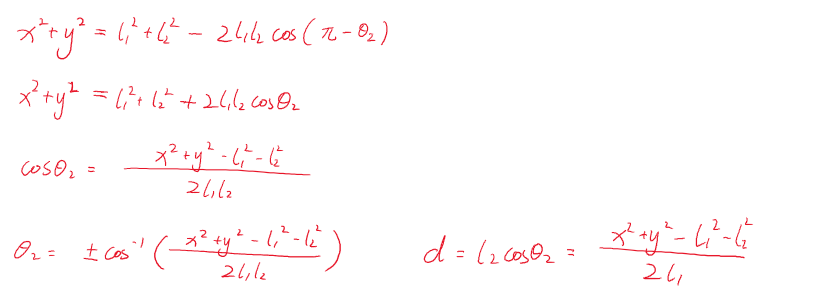 x² + y² = l₁² + l₂² - 2l₁l₂ cos(π - θ₂)
x² + y² = l₁² + l₂² + 2l₁l₂ cosθ₂
cosθ₂ = (x² + y² - l₁² - l₂²) / (2l₁l₂)
θ₂ = ± cos⁻¹((x² + y² - l₁² - l₂²) / (2l₁l₂))
d = l₂ cosθ₂ = (x² + y² - l₁² - l₂²) / (2l₁)